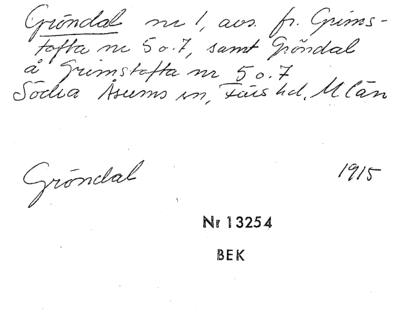 Gröndal nr 1, avs. fr. Grims-
tofta nr 5 o. 7, samt Gröndal
å Grimstofta nr 5 o. 7
Södra Åsums sn, Färs hd, M län
Gröndal 1915
Nr 13254
BEK